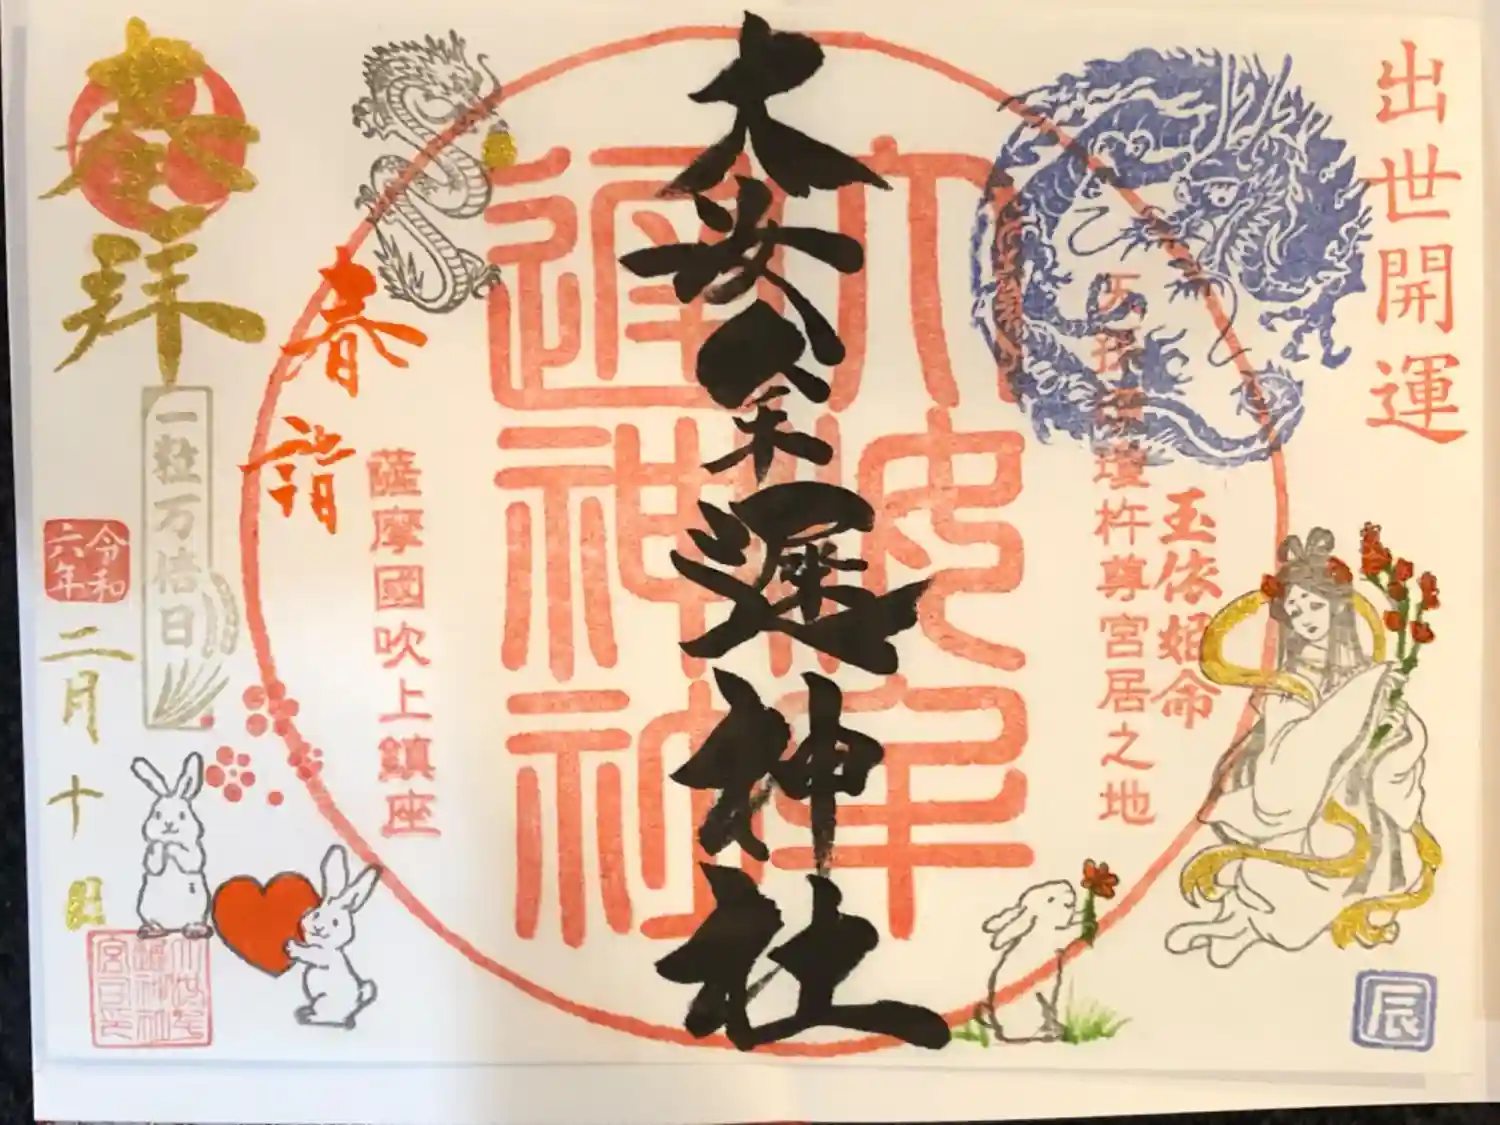 出世開運
玉依姫命
天孫瓊瓊杵尊宮居之地
大汝牟遅神社
大汝牟遅神社
薩摩國吹上鎮座
春詣
奉拝
一粒万倍日
令和六年
二月十日
辰